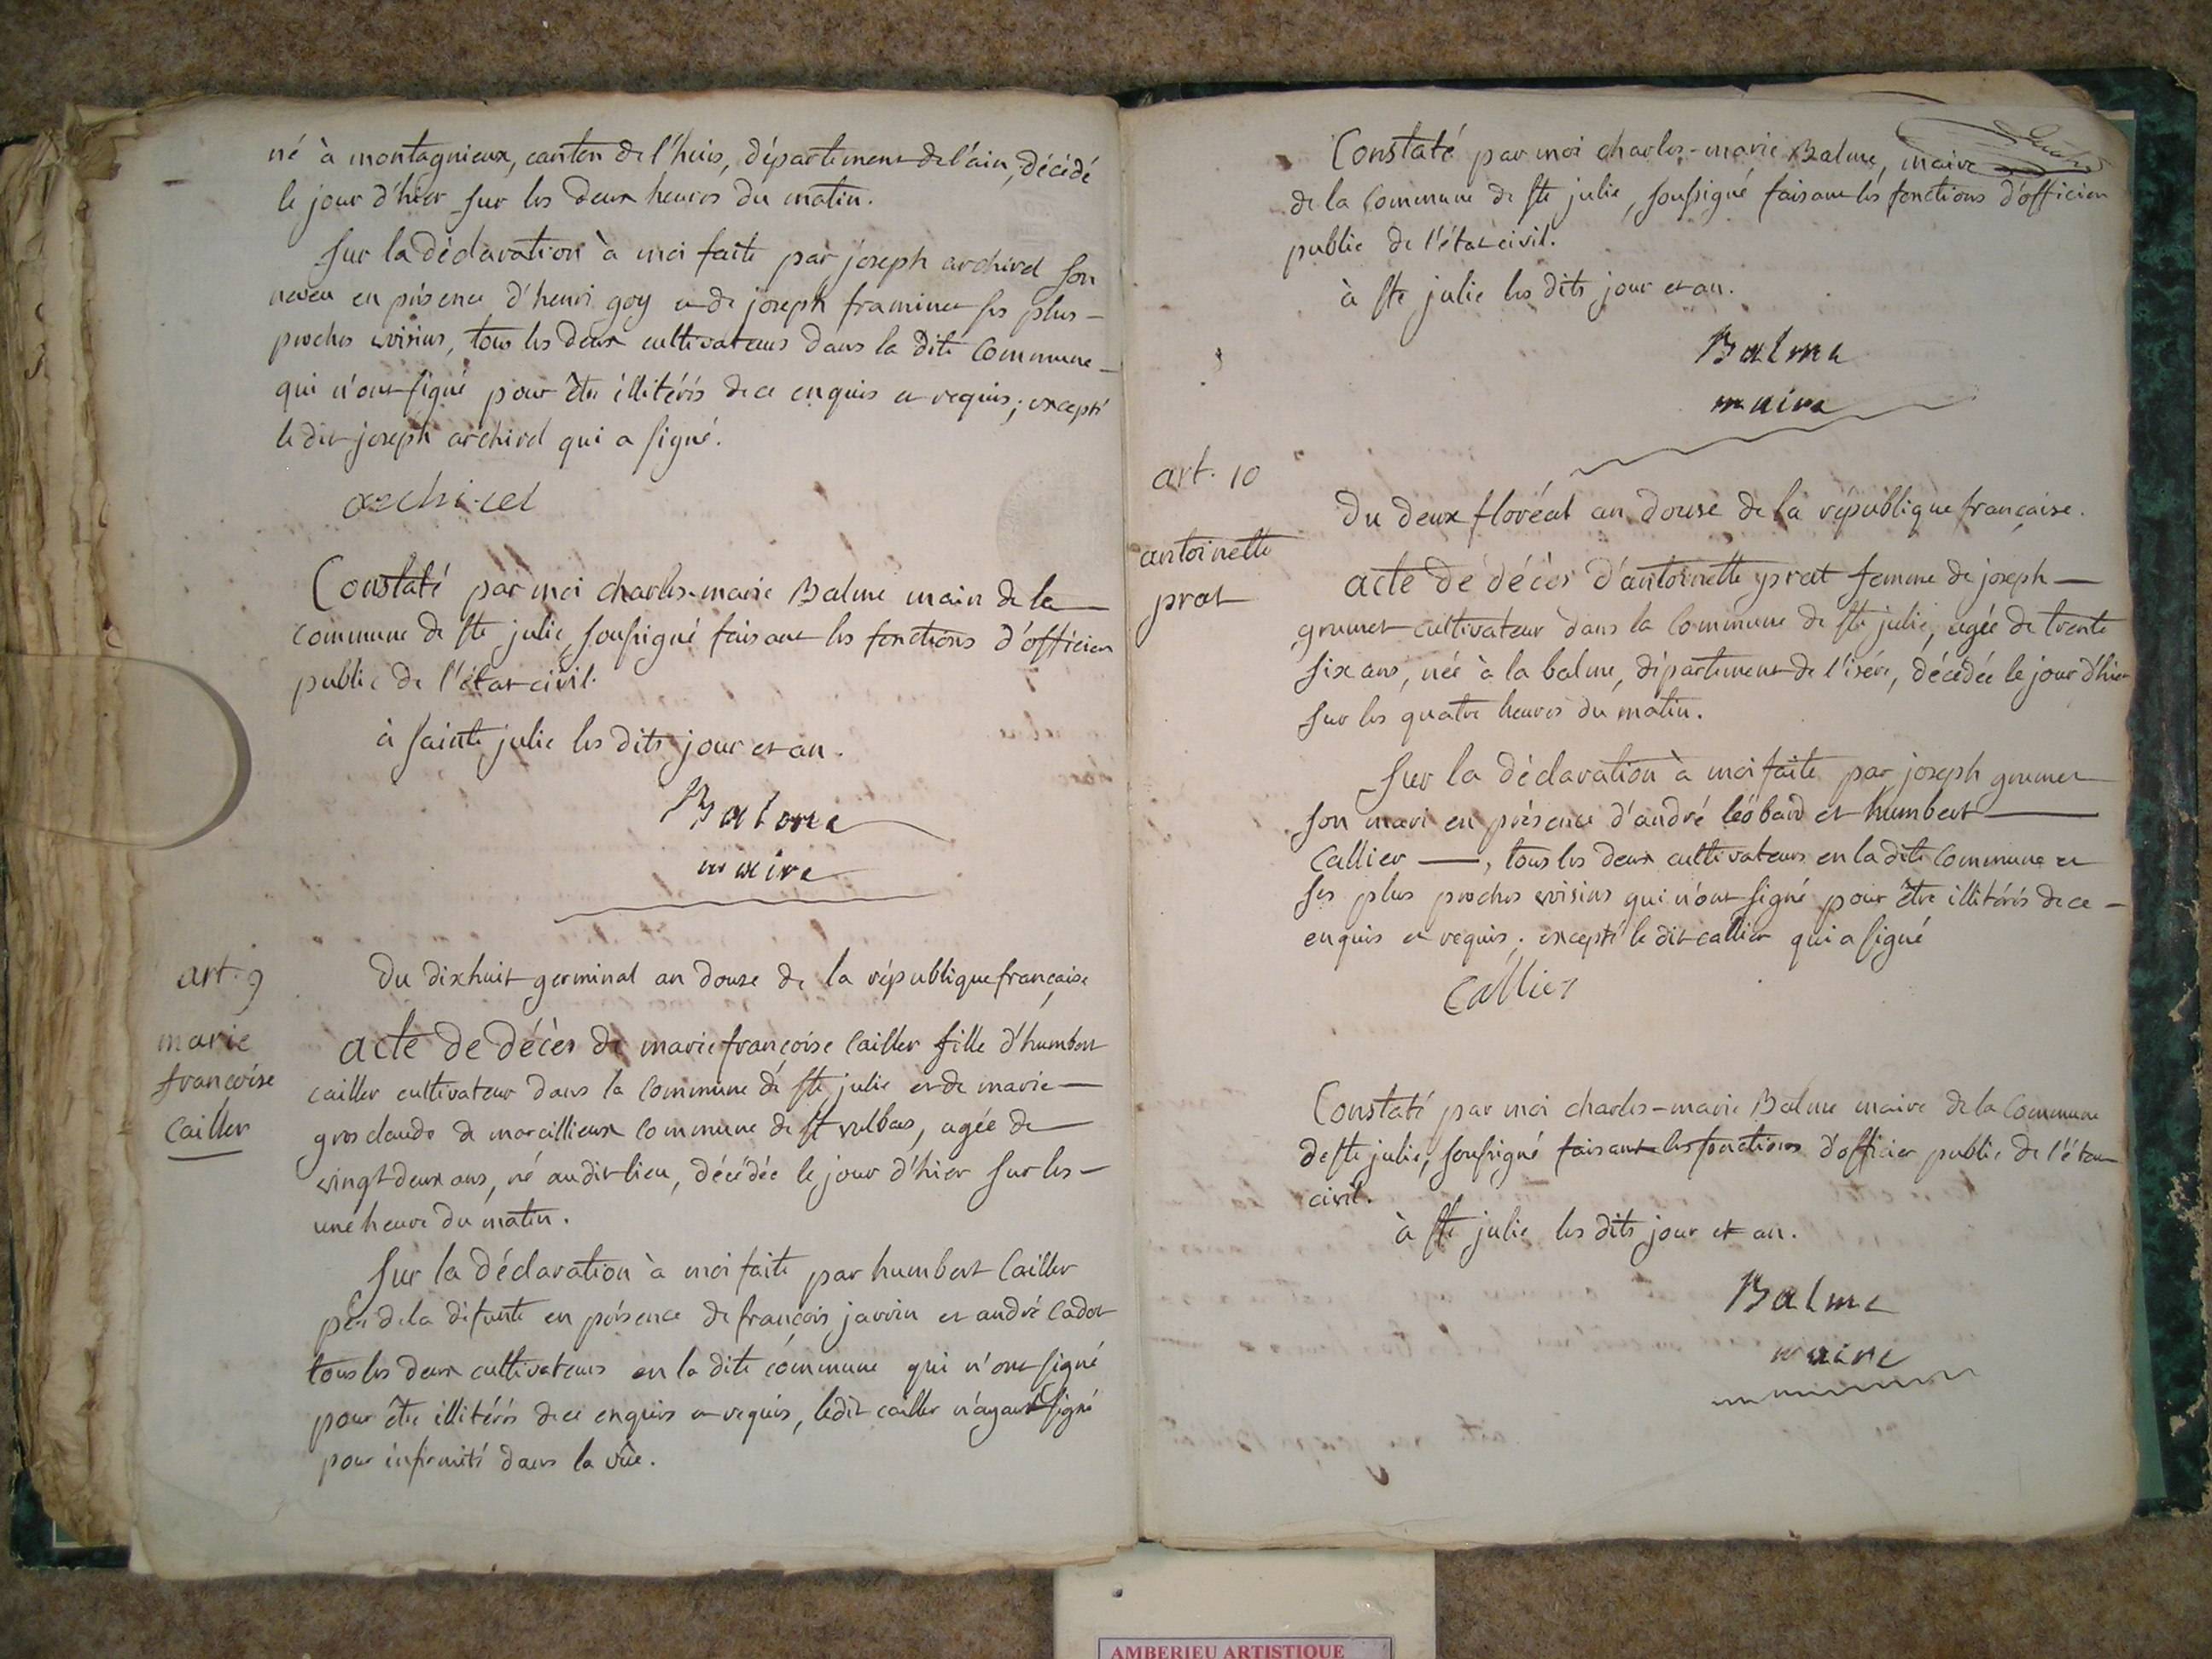 né à montagnieux, canton de l'huis, département de l'ain, décédé
le jour d'hier sur les deux heures du matin.
Sur la déclaration à moi faite par joseph archirel son
neveu en présence d'henri goy et de joseph framinet ses plus
proches voisins, tous les deux cultivateurs dans la dite Commune
qui n'ont signé pour être illitérés de ce enquis et requis; excepté
le dit joseph archirel qui a signé.
archirel
Constaté par moi charles-marie Balme maire de la
commune de ste julie, soussigné faisant les fonctions d'officier
public de l'état civil.
à sainte julie les dits jour et an.
Balme
maire
art. 9
marie
françoise
Cailler
Du dixhuit germinal an douze de la république française
acte de décès de marie françoise Cailler fille d'humbert
cailler cultivateur dans la Commune de ste julie et de marie
gros claude de marcillieux Commune de st vulbas, agée de
vingt deux ans, né au dit lieu, décédée le jour d'hier sur les
une heure du matin.
Sur la déclaration à moi faite par humbert Cailler
père de la défunte en présence de françois janvin et andré Cadot
tous les deux cultivateurs en la dite commune qui n'ont signé
pour être illitérés de ce enquis et requis, ledit cailler n'ayant signé
pour infirmité dans la vûe.
Constaté par moi charles-marie Balme, maire
de la Commune de ste julie, soussigné faisant les fonctions d'officier
public de l'état civil.
à ste julie les dits jour et an.
Balme
maire
art. 10
antoinette
prat
Du deux floréal an douse de la république française.
acte de décès d'antoinette prat femme de joseph
grumet cultivateur dans la Commune de ste julie, agée de trente
six ans, née à la balme, département de l'isére, décédée le jour d'hier
sur les quatre heures du matin.
Sur la déclaration à moi faite par joseph grumet
son mari en présence d'andré léobard et humbert
Callier, tous les deux cultivateurs en la dite Commune et
ses plus proches voisins qui n'ont signé pour être illitérés de ce
enquis et requis; excepté le dit callier qui a signé
Callier
Constaté par moi charles-marie Balme maire de la Commune
de ste julie, soussigné faisant les fonctions d'officier public de l'état
civil.
à ste julie les dits jour et an.
Balme
maire
AMBERIEU ARTISTIQUE